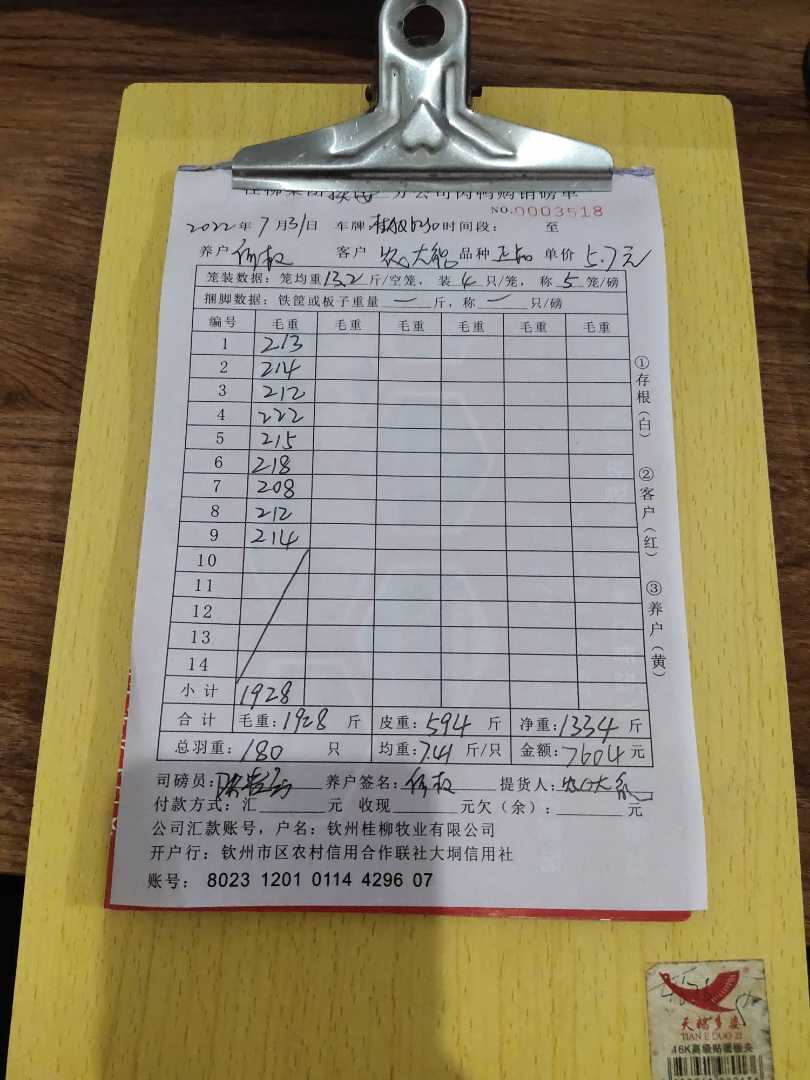 分公司肉鸭购销磅单
NO.0003518
2022年7月31日 车牌: 时间段: 至
养户 客户 品种 正品 单价 5.7元
笼装数据: 笼均重13.2斤/空笼, 装4只/笼, 称5笼/磅
捆脚数据: 铁筐或板子重量 一 斤, 称 一 只/磅
编号 毛重 毛重 毛重 毛重 毛重 毛重
1 213
2 214
3 212
4 222
5 215
6 218
7 208
8 212
9 214
10
11
12
13
14
小计 1928
合计 毛重:1928斤 皮重:594斤 净重:1334斤
总羽重:180只 均重:7.41斤/只 金额:7604元
①存根(白)
②客户(红)
③养户(黄)
司磅员: 养户签名: 提货人:
付款方式: 汇 元 收现 元欠(余): 元
公司汇款账号, 户名: 钦州桂柳牧业有限公司
开户行: 钦州市区农村信用合作联社大垌信用社
账号: 8023 1201 0114 4296 07
天娥多姿
TIAN E DUO ZI
16K高级贴面板夹